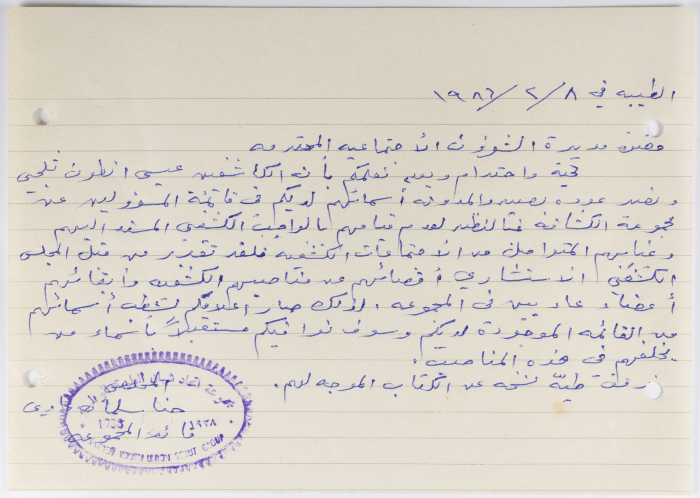 الطيبه في ٨/ ٢/ ١٩٨٦
حضرة مديرة الشؤون الاجتماعيه المحترمه
تحية واحترام وبعد نعلمكم بأنه الكاشفين عيسى انطون
ونصر عوده نصر والمدونه أسمائهم لديكم في قائمة المسؤولين عن
مجموعة الكشافه فبالنظر لعدم قيامهم بالواجبات الكشفيه المسنده اليهم
وغيابهم المتواصل عن الاجتماعات الكشفيه فلقد تقرر من قبل المجلس
الكشفي الاستشاري أقصائهم من مناصبهم الكشفيه وأبقائهم
أعضاء عاديين في المجموعه. لذلك صار إعلامكم لشطب أسمائهم
من القائمه الموجودة لديكم وسوف نوافيكم مستقبلاً بأسماء من
يخلفهم في هذه المناصب.
نرفق طيّه نسخه عن الكتاب الموجه لهم.
حنا سلمان
قائد المجموعه
١٩٣٨
SCOUT GROUP